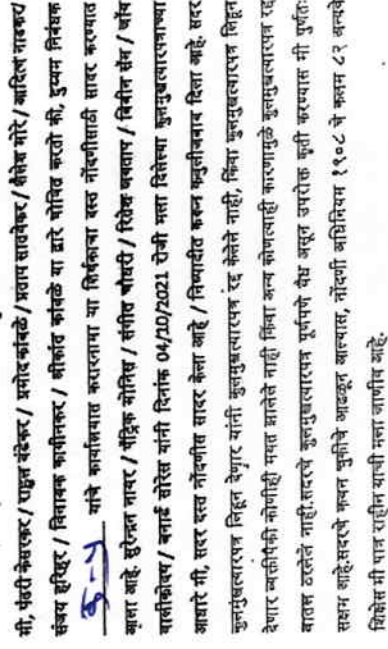 मी, पंढरी केसरकर/ राहुल बंटेकर/ प्रमोद कांबळे/ प्रताप सावदेकर/ शैलेश मोरे/ आदित्य नाडकर/
संजय हरिहर/ विनायक कापीनकर/ श्रीकांत कांबळे या द्वारे घोषित करतो की, दुय्यम निबंधक
कु-५ यांचे कार्यालयात करारनामा या शिर्षकाचा दस्त नोंदणीसाठी सादर करण्यात
आला आहे. सुरेन्द्रन नायर/ पॅट्रिक मोनिस/ संगीत चौधरी/ रितेक जगताप/ बिबीन सॅम/ जॉय
वालीकोदथ/ बनार्ड सोरेस यांनी दिनांक 04/10/2021 रोजी मला दिलेल्या कुलमुखत्यारपत्राच्या
आधारे मी, सदर दस्त नोंदणीस सादर केला आहे / निष्पादीत करून कबुलीजबाब दिला आहे. सदर
कुलमुखत्यारपत्र लिहून देणार यांनी कुलमुखत्यारपत्र रद्द केलेले नाही, किंवा कुलमुखत्यारपत्र लिहून
देणार व्यक्तीपैकी कोणीही मयत झालेले नाही किंवा अन्य कोणत्याही कारणामुळे कुलमुखत्यारपत्र रद्द
बातल ठरलेले नाही.सदरचे कुलमुखत्यारपत्र पूर्णपणे वैध असून उपरोक्त कृती करण्यास मी पुर्णतः
सक्षम आहे.सदरचे कथन चुकीचे आढळून आल्यास, नोंदणी अधिनियम १९०८ चे कलम ८२ अन्वये
शिक्षेस मी पात्र राहीन याची मला जाणीव आहे.